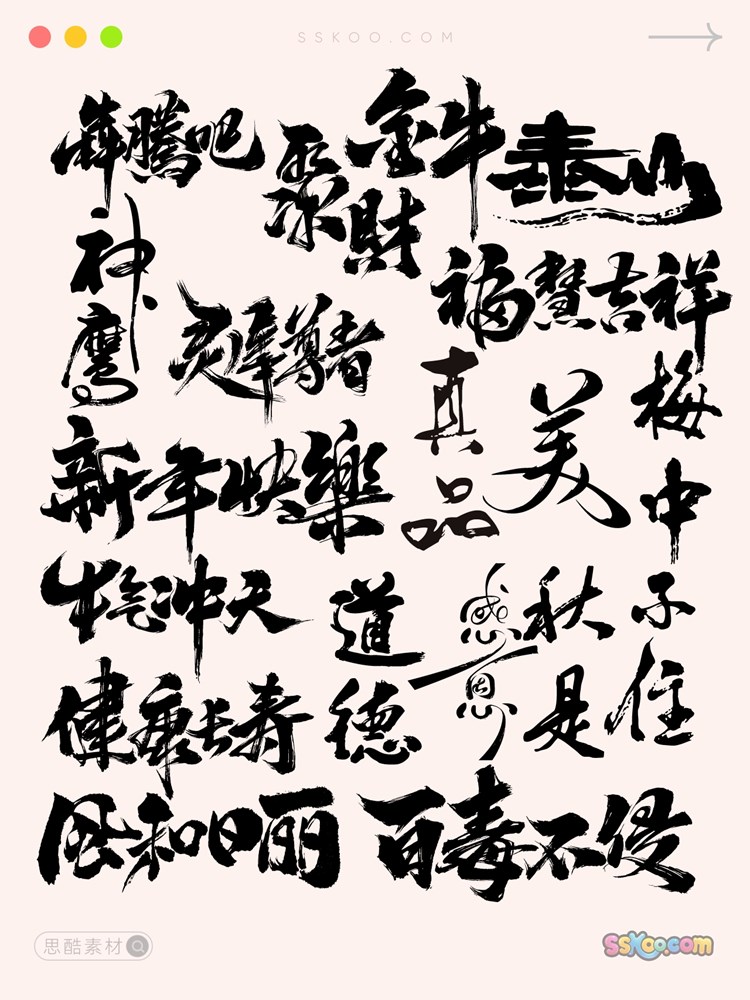 SSKOO.COM
犇腾吧
聚財
金牛
泰山
神鹰
灵犀尊者
福慧吉祥
真品
美
梅中
新年快樂
牛气冲天
道德
感恩
秋是
不住
健康长寿
风和日丽
百毒不侵
思酷素材
sskoo.com